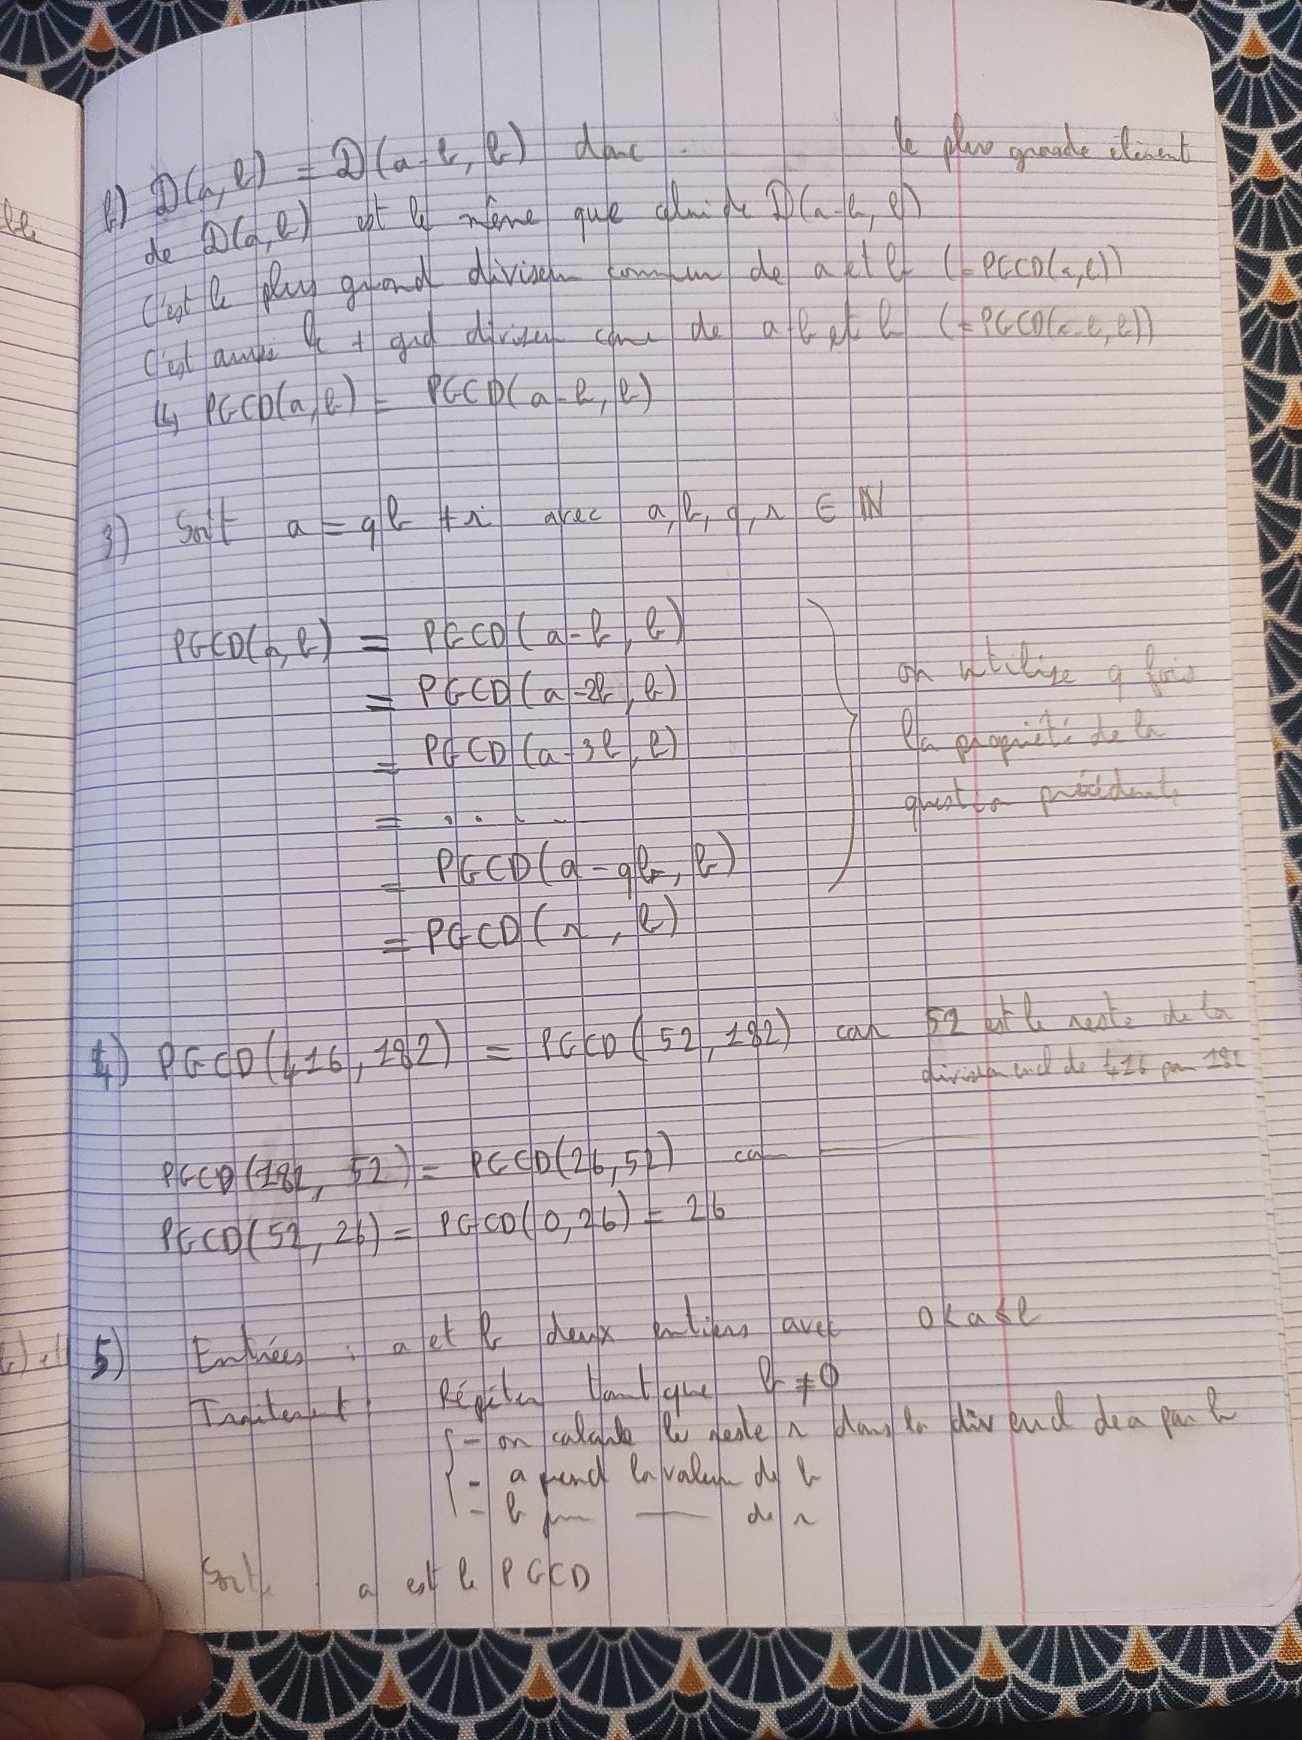 b) D(a,b) = D(a-b, b) donc le plus grande élément
de D(a,b) est le même que celui de D(a-b, b)
C'est le plus grand diviseur commun de a et b (=PGCD(a,b))
C'est aussi le + grd diviseur com de a-b et b (=PGCD(a-b,b))
↳ PGCD(a,b) = PGCD(a-b, b)
3) Soit a = qb + r avec a, b, q, r ∈ ℕ
PGCD(a,b) = PGCD(a-b, b)
= PGCD(a-2b, b)
= PGCD(a-3b, b)
= ....
= PGCD(a-qb, b)
= PGCD(r, b)
on utilise q fois
la propriété de la
question précédente
4) PGCD(416,182) = PGCD(52,182) car 52 est le reste de la
division eucl de 416 par 182
PGCD(182, 52) = PGCD(26,52) car ———
PGCD(52,26) = PGCD(0,26) = 26
5) Entrées : a et b deux entiers avec
Traitement : Répéter tant que b ≠ 0
- on calcule le reste r dans la div eucl de a par b
- a prend la valeur de b
- b pren —— de r
Sortie : a est le PGCD